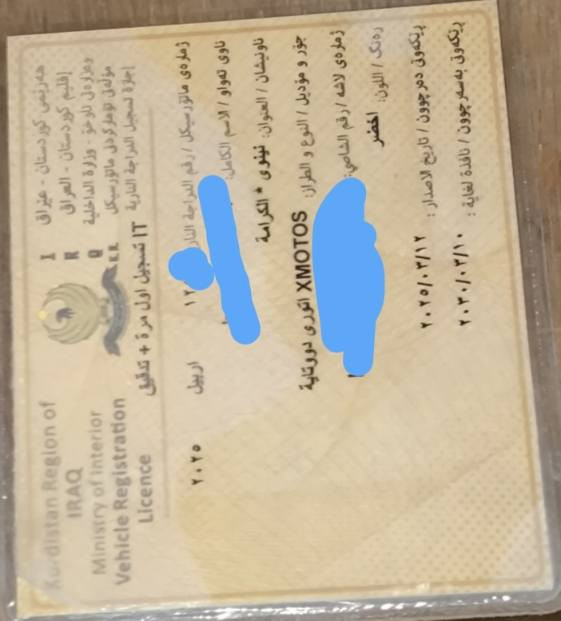 Kurdistan Region of
IRAQ
Ministry of Interior
Vehicle Registration
Licence
I
R
Q
K.R
هەرێمی کوردستان - عێراق
إقليم كوردستان - العراق
وەزارەتی ناوخۆ - وزارة الداخلية
مۆڵەتی تۆمارکردنی ماتۆرسیکل
إجازة تسجيل الدراجة النارية
IT تسجيل اول مرة + تدقيق
ژمارەی ماتۆرسیکل / رقم الدراجة النار
١٢ اربيل ٢٠٢٥
ناوی تەواو / الاسم الكامل:
ناونیشان / العنوان: نينوى * الكرامة
جۆر و مۆدێل / النوع و الطراز: XMOTOS
ژمارەی لاشە / رقم الشاصي:
ڕەنگ / اللون: اخضر
ڕێکەوتی دەرچوون / تاريخ الاصدار : ٢٠٢٥/٠٣/١٢
ڕێکەوتی بەسەرچوون / نافذة لغاية : ٢٠٣٠/٠٣/١٠